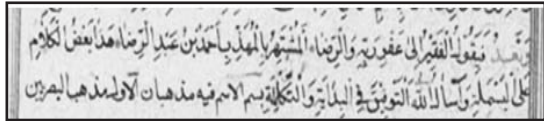 وبعد فيقول الفقير الى عفو ربه والرضاء المشتهر بالمهذب احمد بن عبد الرضاء هذا بعض الكلام
على البسملة وأسأل الله التوفيق في البداية والتكلمة بسم الاسم فيه مذهبان الاول مذهب البصريين